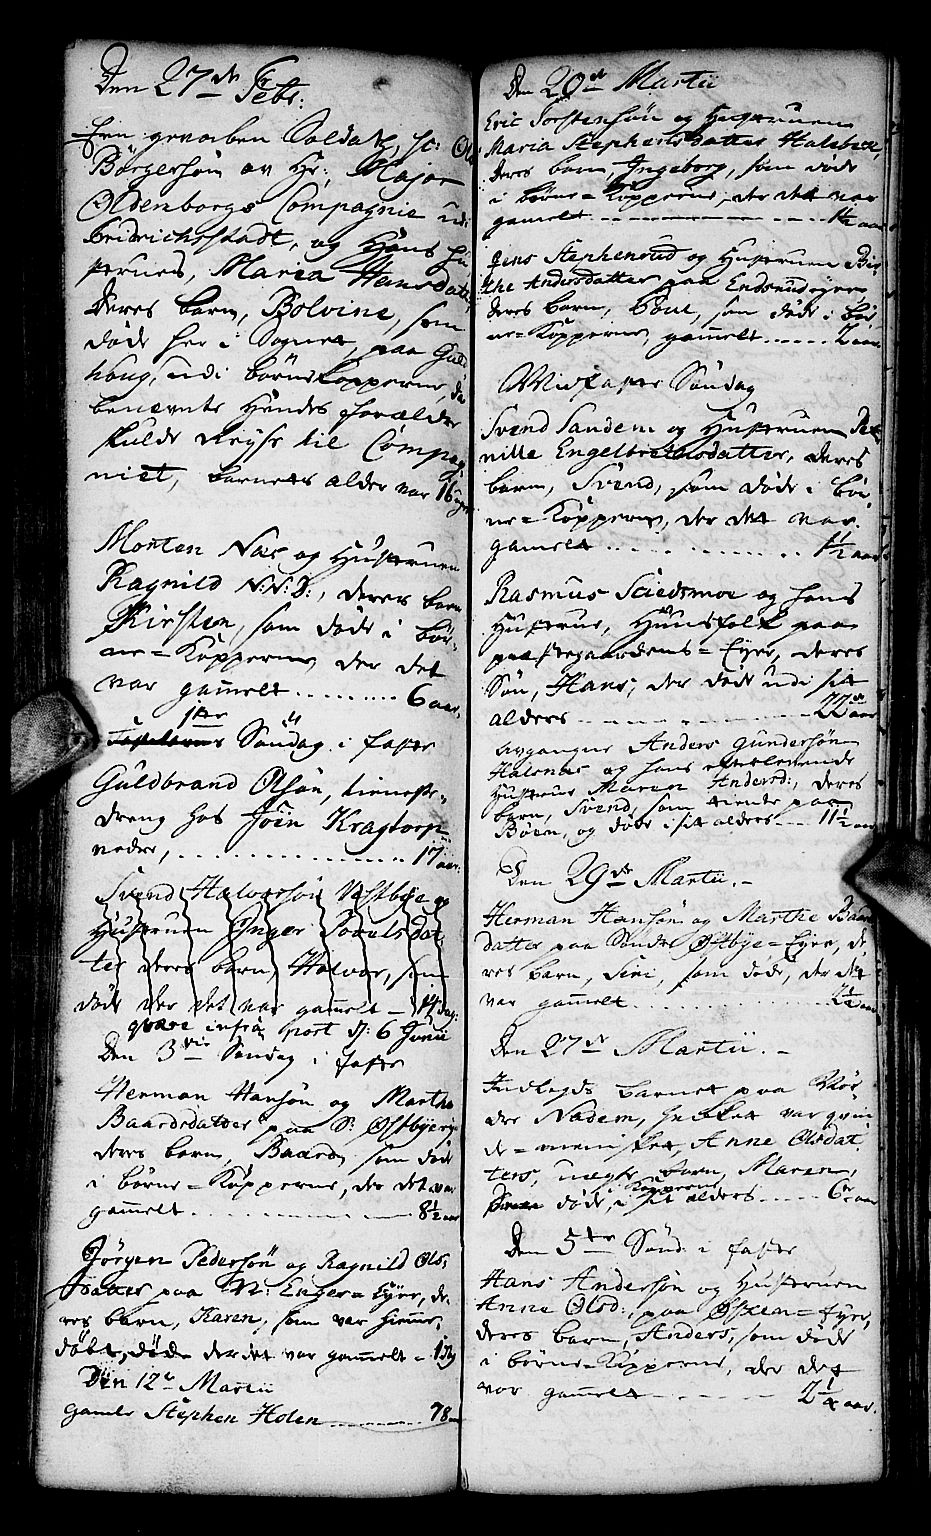 Den 27de Febr:
Een gevorben Soldat, sc: Ole
Börgersön av Hr: Major
Oldenborgs Compagnie udi
Fridrichsstadt, og Hans Hu
strues, Maria Hansdatt
deres barn, Bolvine, som
döde her i Sognet, paa Guld
houg, udi börnekopperne, da
benævnte Hendes forældre
skulde Reyse til Compag
niet, barnets alder var 16 uger
Morten Næs og Hustruen
Ragnild N:N:D:, deres barn
Kirsten, som döde i Bör-
ne=Kopperne der det
var gammelt ......... 6 aar.
1ste
Fastelavns Söndag i faste
Guldbrand Olsön, tieneste-
dreng hos Join Kragtorp
nedre, ............ 17 aar.
Svend Halvorsön Vestbye og
Hustruen Inger Povelsdat
ter deres barn, Halvor, som
döde der det var gammelt - 14 dag:
qvære infra post d: 6 Junii
Den 3die Söndag i faste
Herman Hansön og Marthe
Baardsdatter paa S: Östbyeeye
deres barn, Baard, som döde
i börne=Kopperne, der det var
gammelt ......... 8½ aar
Jörgen Pedersön og Ragnild Ols-
datter paa N: Enger=Eyer, de-
res barn, Karen, som var hiemme-
döbt, döde der det var gammelt - 1 dag
Den 12te Martii
Gamle Stephen Holen ......... 78
Den 20de Martii
Eric Torstensön og Hustruen
Maria Stephensdatter Halsbak,
deres barn, Ingeborg, som döde
i börne=Kopperne, der det var
gammelt ......... 1½ aar
Jens Stephensrud og Hustruen Bir
the Andersdatter paa Endsrudeyer
deres barn, som döde i bör
ne=Kopperne, gammelt ..... 2 aar
Midfaste Söndag
Svend Sandem og Hustruen Per
nille Engelbrethsdatter, deres
barn, Svend, som döde i bör
ne=Kopperne, der det var
gammelt ......... 1½ aar
Rasmus Sciedsmoe og hans
Hustrue, Huusfolk paa
præstegaardens=Eyer, deres
Sön, Hans, der döde udi sit
alders ......... 22de aar
avgangne Anders Gundersön
Halsnæs og hans efterlevende
Hustrue Maren Andersd:, deres
barn, Svend, som tiente paa
Böen, og döde i sit alders --- 11½ aar
Den 29de Martii.-
Herman Hansön og Marthe Baard
datter paa Söndre Östbye=Eyer, de
res barn, Siri, som döde, der det
var gammelt ......... 2½ aar
Den 27de Martii.-
Indlagds barnet paa
Nadem, hvilket var qvin
de=mennisket, Anne Olsdat
ters, uægte barn, Maren,
Kopperne
döde, i sit alders ..... 6te aar
Den 5te Sönd: i faste
Hans Andersön og Hustruen
Anne Olsd: paa Östen=Eyer,
deres barn, Anders, som döde
i börne=Kopperne, der det
var gammelt ......... 2¼ aar.